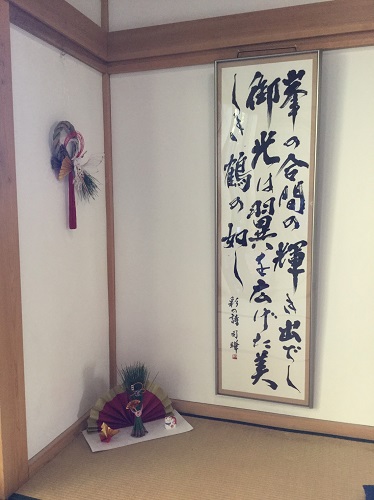 峯の合間の輝き出でし
御光は翼を広げた美
しき鶴の如し
彩の譜